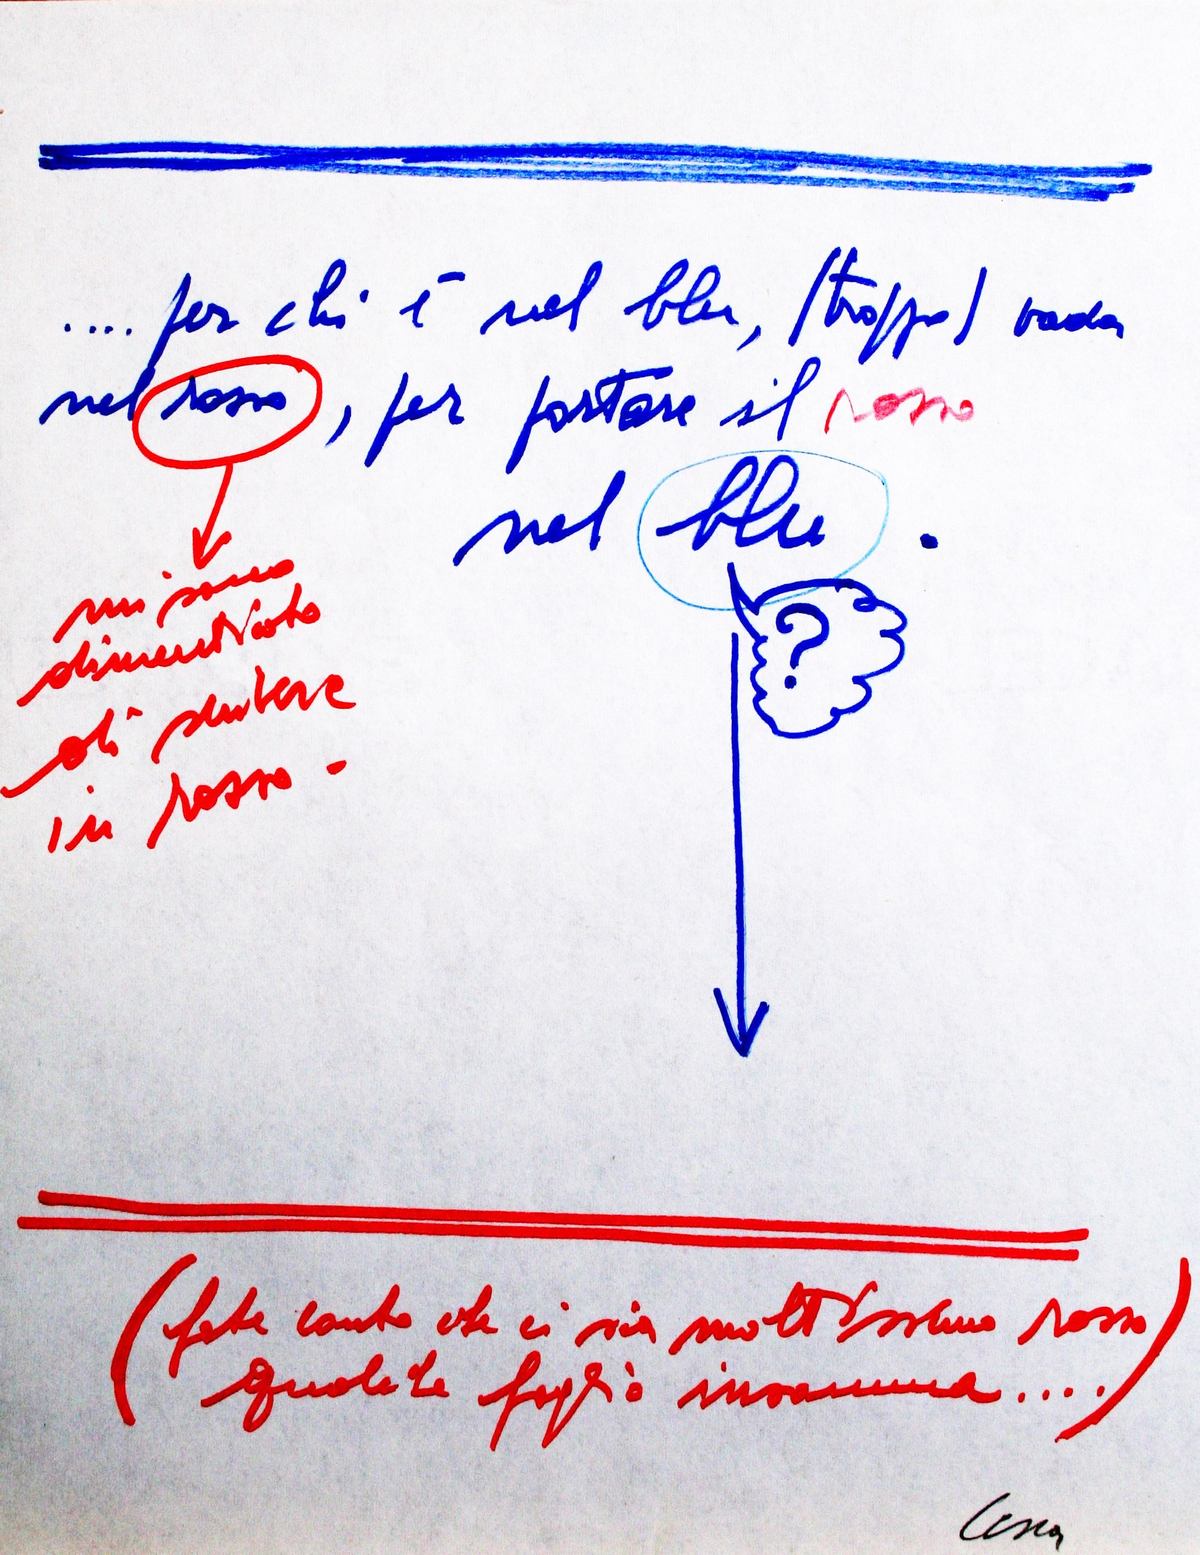 .... per chi è nel blu, (troppo) vada
nel rosso, per portare il rosso
nel blu.
?
mi sono
dimenticato
di scrivere
in rosso -
(fate conto che ci sia moltissimo rosso)
qualche foglio insomma....)